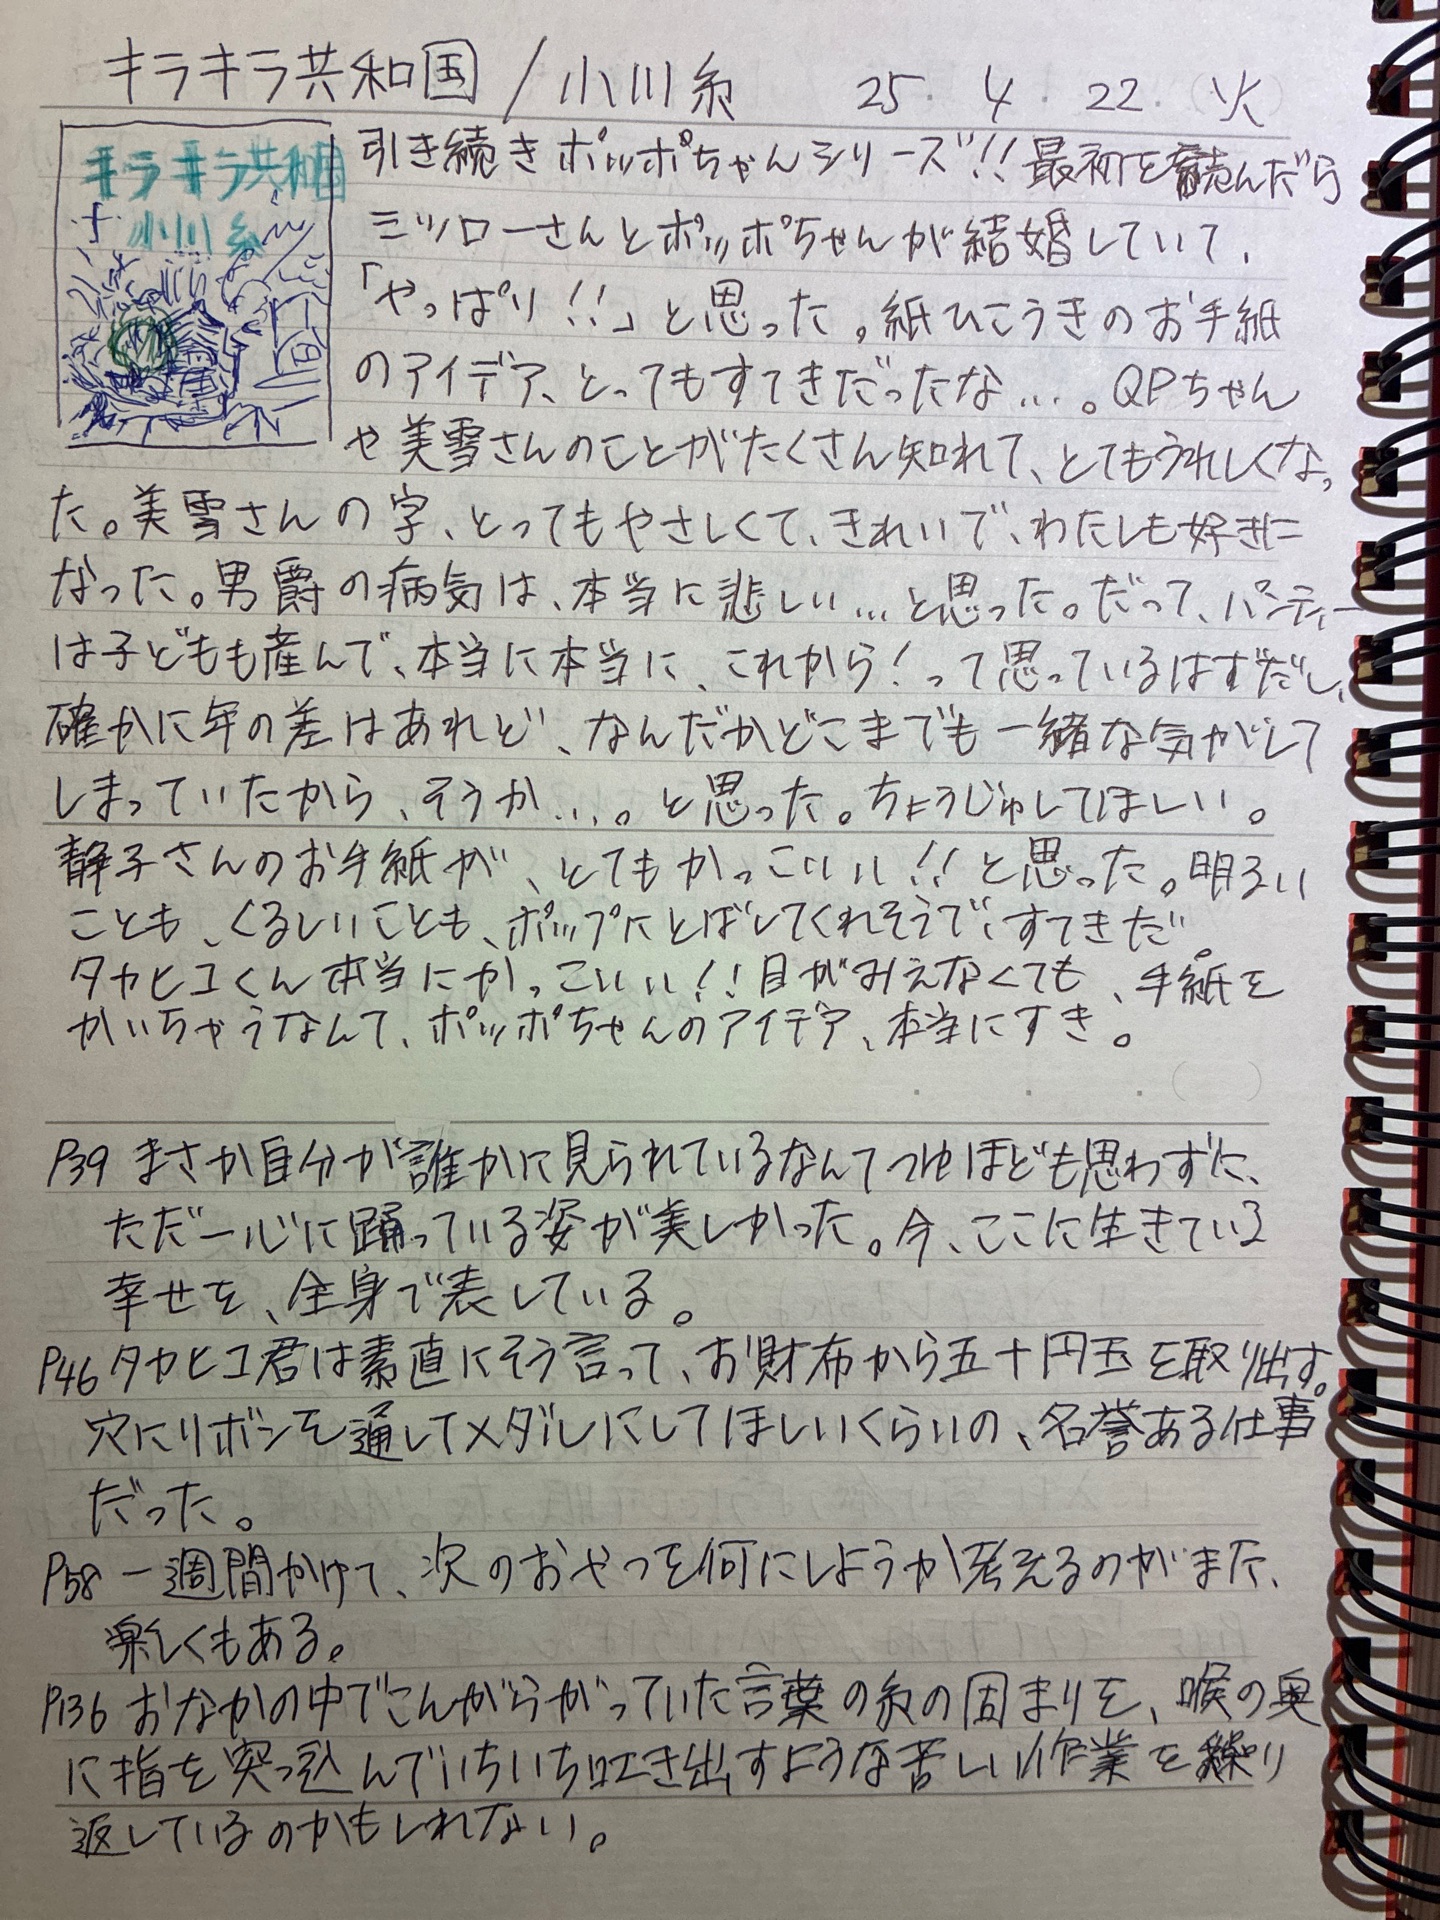 キラキラ共和国/小川糸 25.4.22.(火)
キラキラ共和国
小川糸
引き続きポッポちゃんシリーズ!!最初を読んだら
ミツローさんとポッポちゃんが結婚していて、
「やっぱり!!」と思った。紙ひこうきのお手紙
のアイデア、とってもすてきだったな…。QPちゃん
や美雪さんのことがたくさん知れて、とてもうれしくなっ
た。美雪さんの字、とってもやさしくて、きれいで、わたしも好きに
なった。男爵の病気は、本当に悲しい…と思った。だって、パンティー
は子どもも産んで、本当に本当に、これから!って思っているはずだし、
確かに年の差はあれど、なんだかどこまでも一緒な気がして
しまっていたから、そうか…。と思った。ちょうじゅしてほしい。
静子さんのお手紙が、とてもかっこいい!!と思った。明るい
ことも、くるしいことも、ポップにとばしてくれそうで、すてきだ。
タカヒコくん本当にかっこいい!!目がみえなくても、手紙を
かいちゃうなんて、ポッポちゃんのアイデア、本当にすき。
. . . ( )
P39 まさか自分が誰かに見られているなんてつゆほども思わずに、
ただ一心に踊っている姿が美しかった。今、ここに生きている
幸せを、全身で表している。
P46 タカヒコ君は素直にそう言って、お財布から五十円玉を取り出す。
穴にリボンを通してメダルにしてほしいくらいの、名誉ある仕事
だった。
P58 一週間かけて、次のおやつを何にしようか考えるのがまた、
楽しくもある。
P136 おなかの中でこんがらがっていた言葉の糸の固まりを、喉の奥
に指を突っ込んでいちいち吐き出すような苦しい作業を繰り
返しているのかもしれない。